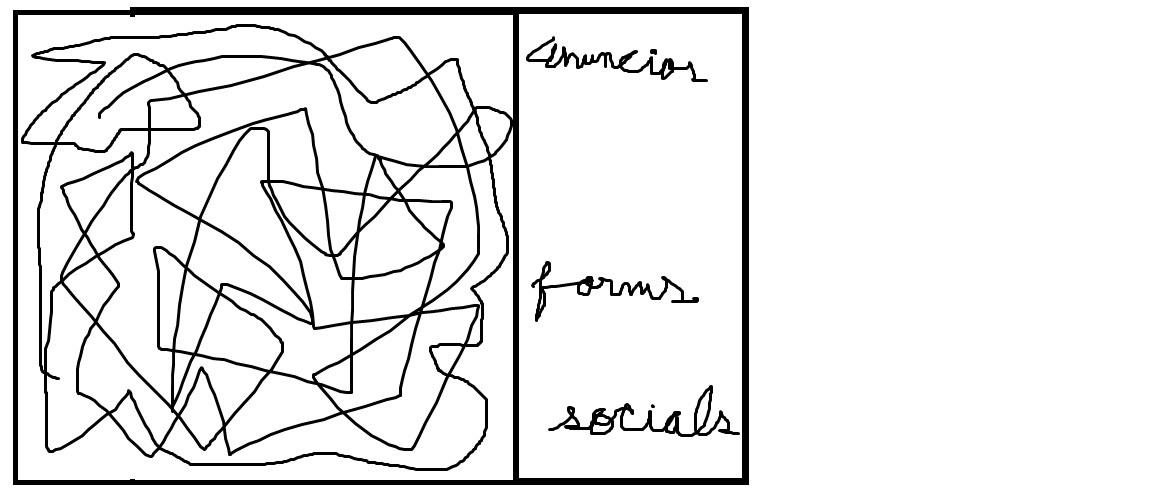 anuncios
forms
socials